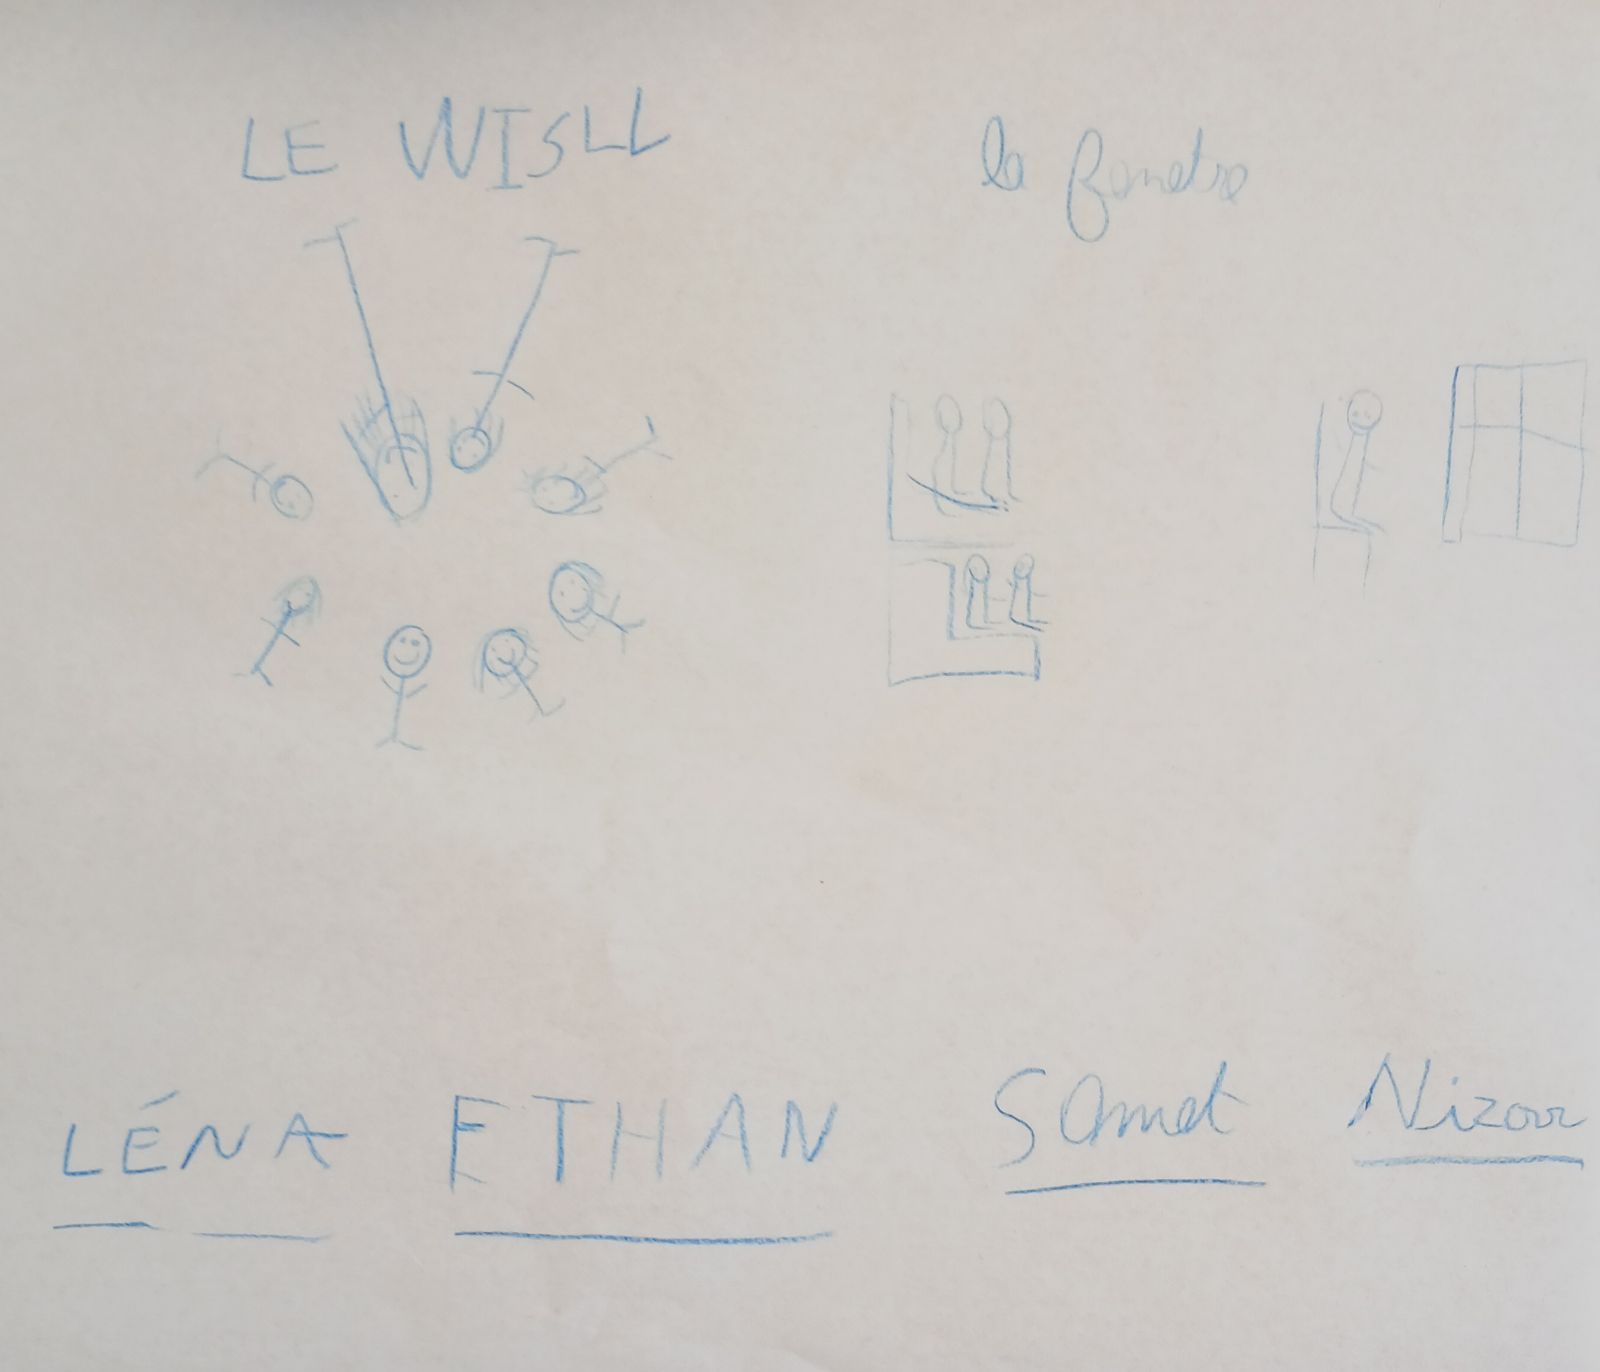 LE WISLL
la fenetre
LÉNA ETHAN Samet Nizar